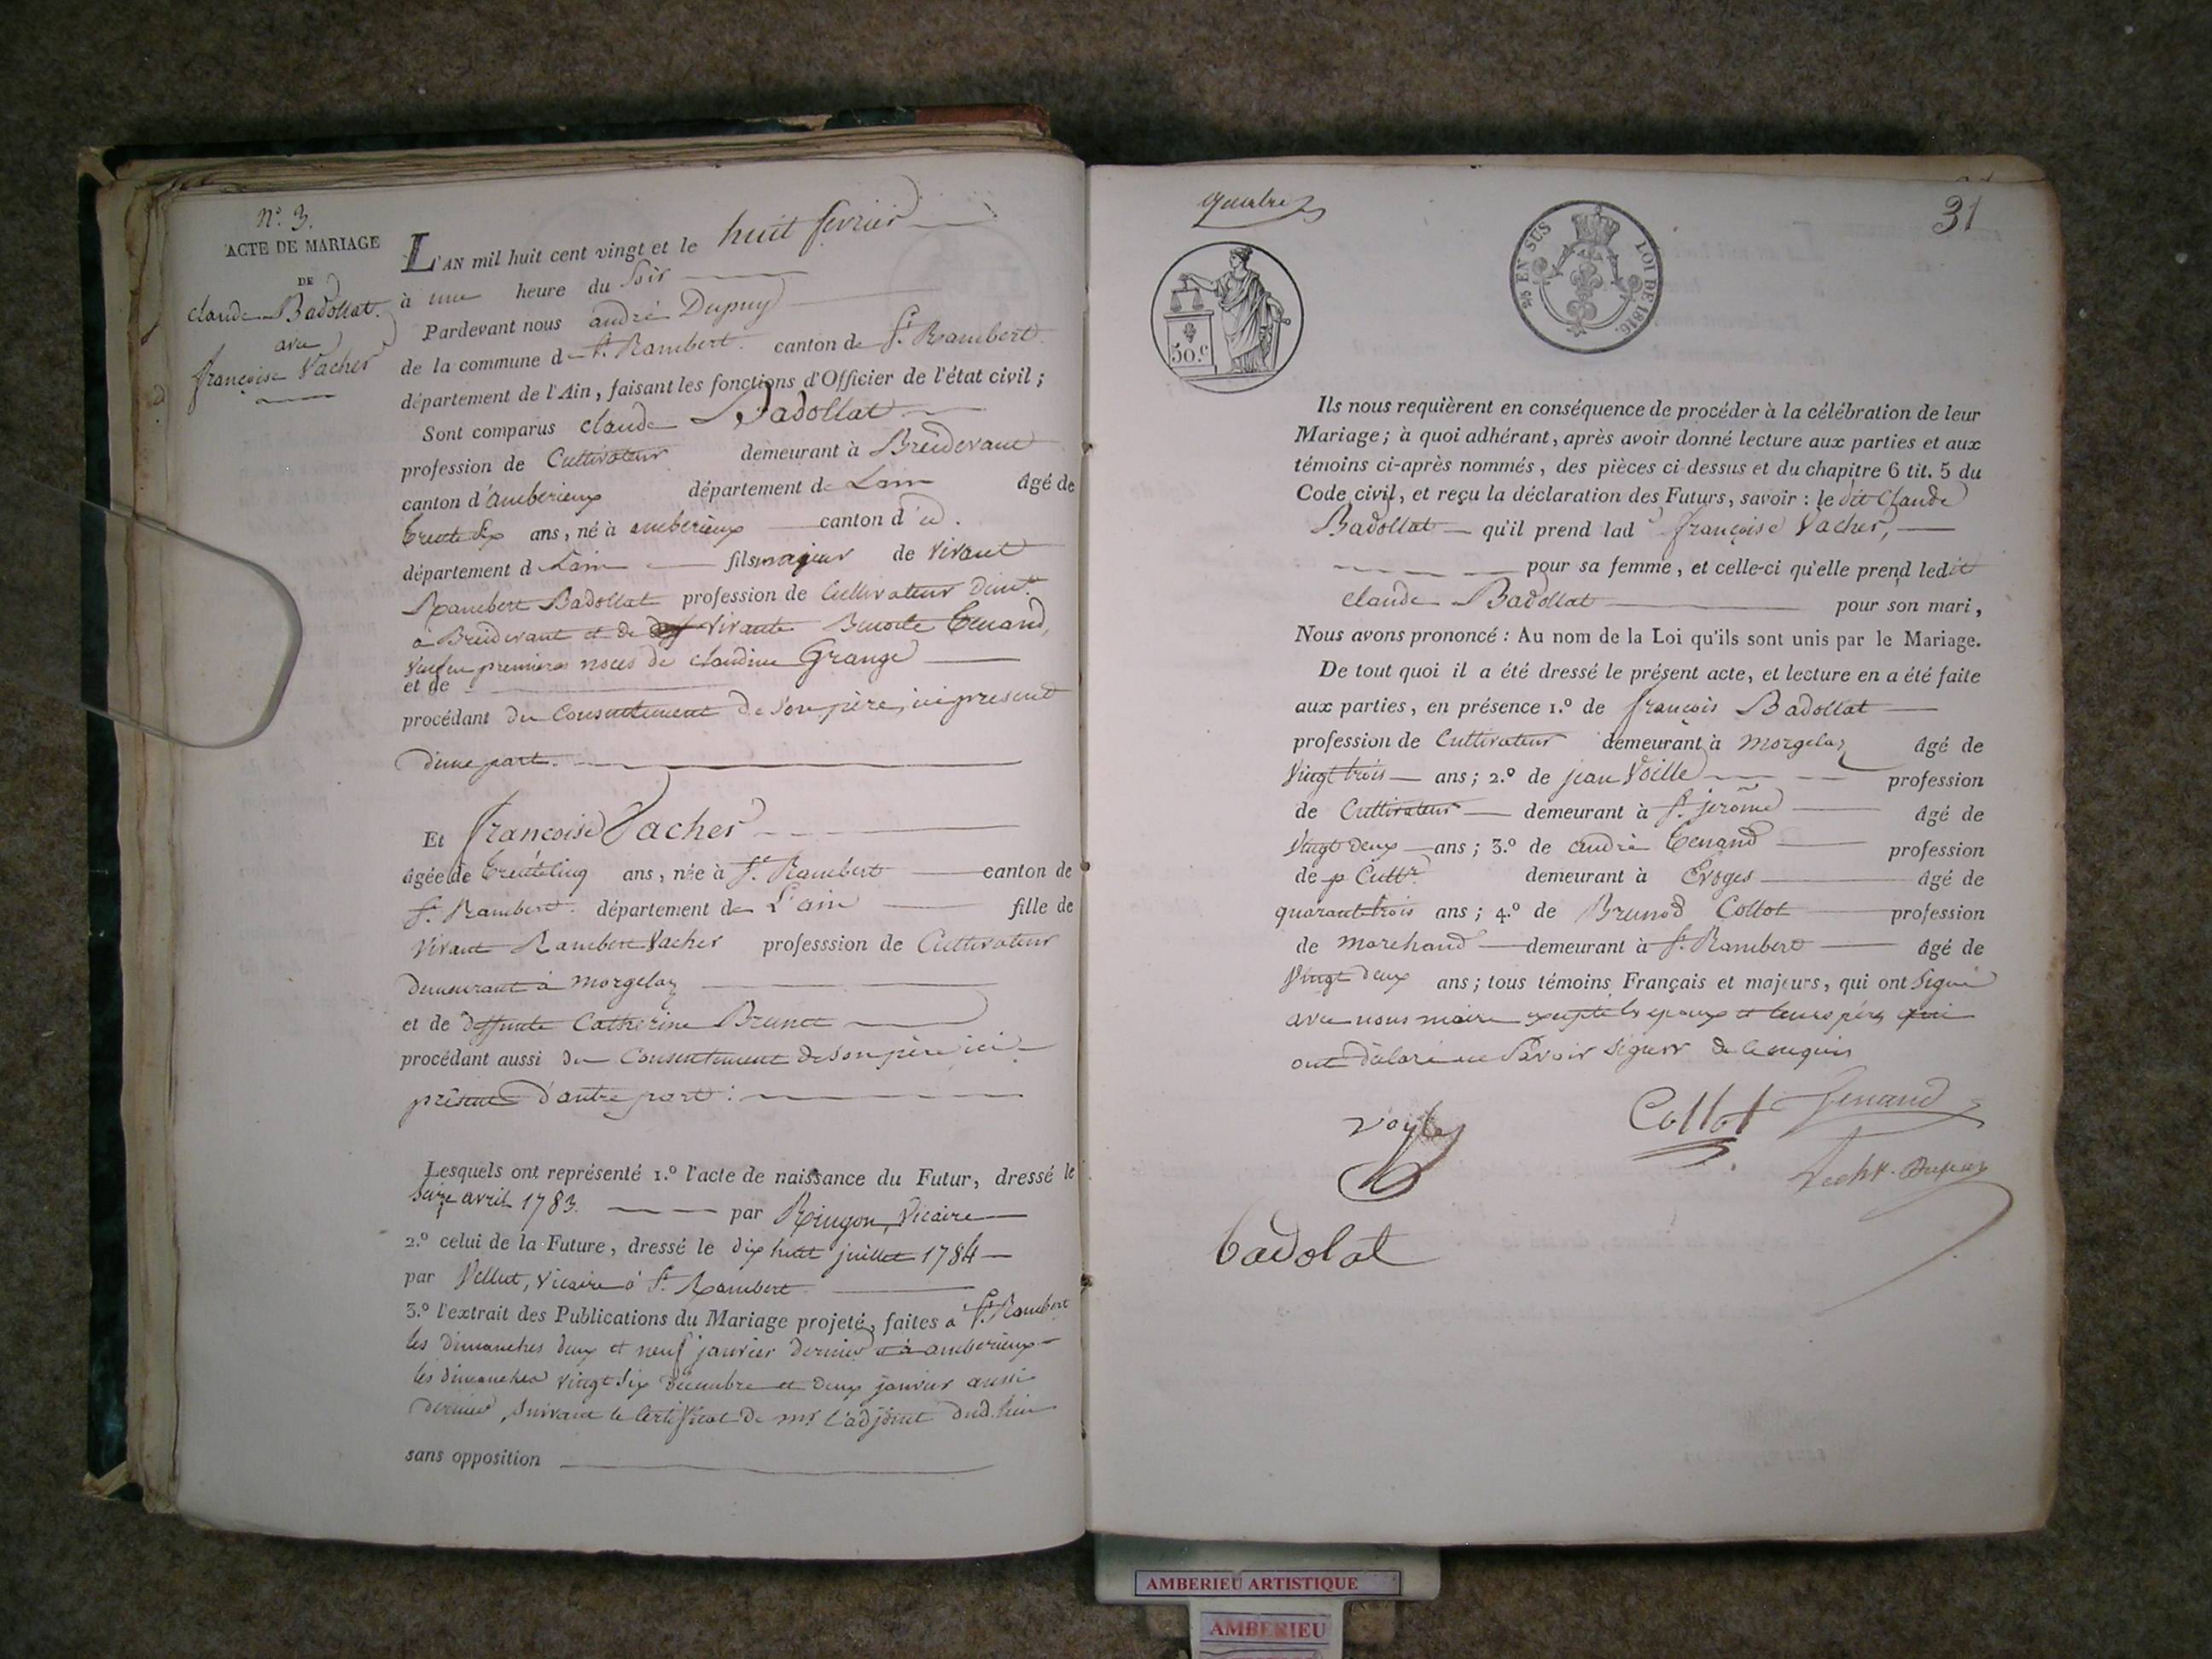 N.º 3.
ACTE DE MARIAGE
DE
claude Badollat.
avec
françoise Vacher
L'AN mil huit cent vingt et le huit fevrier
à une heure du soir
Pardevant nous andré Dupuy
de la commune de St. Rambert. canton de St. Rambert.
département de l'Ain, faisant les fonctions d'Officier de l'état civil;
Sont comparus claude Badollat
profession de Cultivateur demeurant à Breydevant
canton d'amberieux département de Lain âgé de
trente six ans, né à amberieux canton d'id.
département d Lain fils majeur de vivant
Rambert Badollat profession de Cultivateur demt.
à Breydevant et de vivante Benoite Tenand,
veuf en premieres noces de claudine Grange
et de
procédant du Consentement de son père, ici present
d'une part.
Et françoise Vacher
âgée de trente cinq ans, née à St. Rambert canton de
St. Rambert. département de L'ain fille de
vivant Rambert Vacher professsion de Cultivateur
demeurant à morgelaz
et de deffunte Catherine Brunet
procédant aussi du Consentement de son père ici
présent d'autre part :
Lesquels ont représenté 1.º l'acte de naissance du Futur, dressé le
seize avril 1783. par Ringon, Vicaire
2.º celui de la Future, dressé le dix huit juillet 1784
par Vellut, Vicaire à St. Rambert
3.º l'extrait des Publications du Mariage projeté, faites à St. Rambert
les dimanches deux et neuf janvier dernier et à amberieux
les dimanches vingt six decembre et deux janvier aussi
dernier, suivant le Certificat de mr. L'adjoint dud. lieu
sans opposition
quatre
31
50.c
EN SUS
LOI DE 1816.
Ils nous requièrent en conséquence de procéder à la célébration de leur
Mariage; à quoi adhérant, après avoir donné lecture aux parties et aux
témoins ci-après nommés, des pièces ci-dessus et du chapitre 6 tit. 5 du
Code civil, et reçu la déclaration des Futurs, savoir : le dit Claude
Badollat qu'il prend lad françoise Vacher,
pour sa femme, et celle-ci qu'elle prend ledit
claude Badollat pour son mari,
Nous avons prononcé : Au nom de la Loi qu'ils sont unis par le Mariage.
De tout quoi il a été dressé le présent acte, et lecture en a été faite
aux parties, en présence 1.º de françois Badollat
profession de Cultivateur demeurant à morgelaz âgé de
vingt trois ans; 2.º de jean Voille profession
de Cultivateur demeurant à St. jerome âgé de
vingt deux ans; 3.º de andré tenand profession
de p Cultr. demeurant à Evoges âgé de
quarante trois ans; 4.º de Brunod Collot profession
de marchand demeurant à St. Rambert âgé de
vingt deux ans; tous témoins Français et majeurs, qui ont signé
avec nous maire excepté les epoux et leurs pères qui
ont declaré ne savoir signer de ce requis
Collot tenand
voille
Dupuy
badolat
AMBERIEU ARTISTIQUE
AMBERIEU